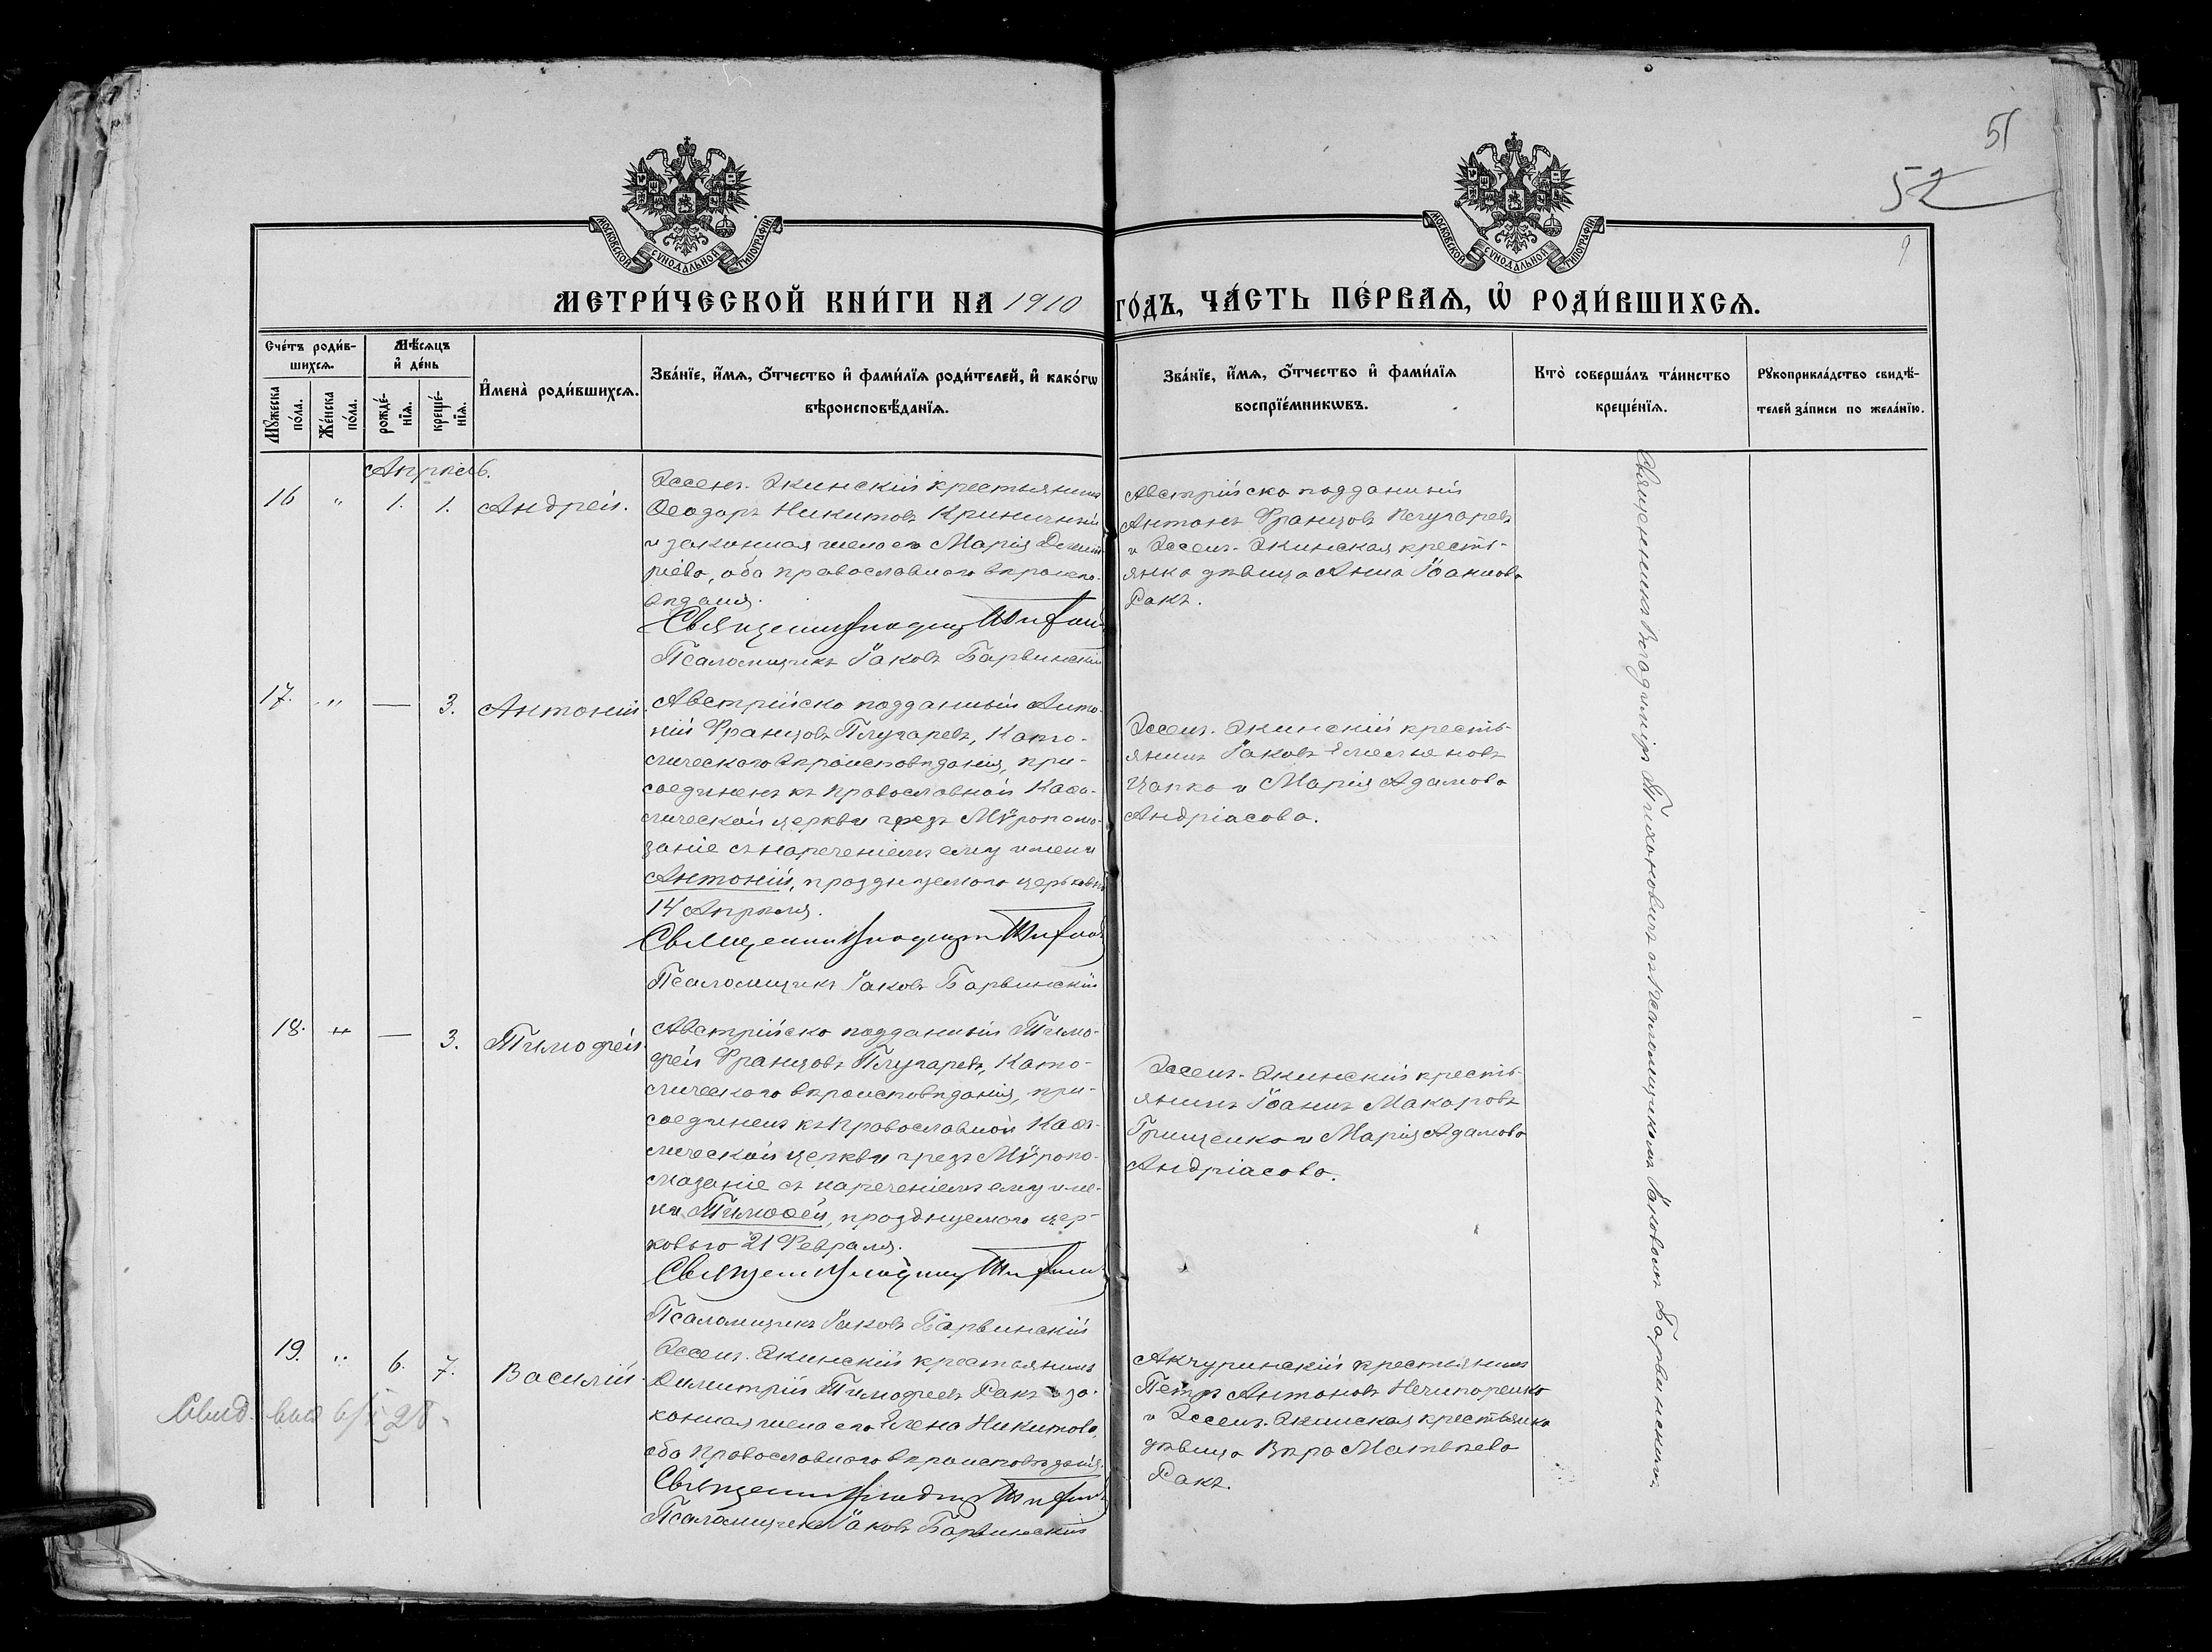 51
52
МОСКОВСКОЙ СѴНОДАЛЬНОЙ ТИПОГРАФІИ
МОСКОВСКОЙ СѴНОДАЛЬНОЙ ТИПОГРАФІИ
МЕТРИ́ЧЕСКОЙ КНИ́ГИ НА 1910 ГО́ДЪ, ЧА́СТЬ ПЕ́РВАѦ, Ѡ҆ РОДИ́ВШИХСѦ.
Счéтъ роди́в-
шихсѧ.
Мꙋ́жеска по́ла.
Же́нска по́ла.
Мѣ́сѧцъ
и҆ де́нь
рожде́-
нїѧ.
креще́-
нїѧ.
И҆мена̀ роди́вшихсѧ.
Зва́нїе, и҆́мѧ, ѻ҆́тчество и҆ фами́лїѧ роди́телей, и҆ како́гѡ
вѣроисповѣ́данїѧ.
Зва́нїе, и҆́мѧ, ѻ҆́тчество и҆ фами́лїѧ
воспрїе́мникѡвъ.
Кто̀ соверша́лъ та́инство
креще́нїѧ.
Рꙋкоприкла́дство свидѣ́-
телей за́писи по жела́нїю.
Апрѣль.
16 " 1. 1. Андрей.
Эссенъ-Экинскій крестьянинъ
Ѳеодоръ Никитовъ Криничный
и законная жена его Марія Димит
ріева, оба православнаго вѣроиспо-
вѣданія.
Священникъ Владиміръ
Псаломщикъ Іаковъ Барвинскій
Австрійско подданный
Антонъ Францовъ Плугаревъ
и Эссенъ-Экинская кресть-
янка дѣвица Анна Іоаннова
Ракъ.
17. " — 3. Антоній.
Австрійско подданный Анто-
ній Францовъ Плугаревъ, Като-
лическаго вѣроисповѣданія, при-
соединенъ къ православной Каѳо-
лической церкви чрезъ Мѵропома-
заніе съ нареченіемъ ему имени
Антоній, празднуемаго церковью
14 Апрѣля.
Священникъ Владиміръ
Псаломщикъ Іаковъ Барвинскій
Эссенъ-Экинскій кресть-
янинъ Іаковъ Емельяновъ
Цапко и Марія Адамова
Андріасова.
18. " — 3. Тимофей.
Австрійско подданный Тимо-
фей Францовъ Плугаревъ, Като-
лическаго вѣроисповѣданія, при-
соединенъ къ Православной Каѳо-
лической церкви чрезъ Мѵропо-
мазаніе съ нареченіемъ ему име-
ни Тимоѳей, празднуемаго цер-
ковью 21 Февраля.
Священникъ Владиміръ
Псаломщикъ Іаковъ Барвинскій
Эссенъ-Экинскій кресть-
янинъ Іоаннъ Макаровъ
Грищенко и Марія Адамова
Андріасова.
19. " 6. 7. Василій.
Эссенъ-Экинскій крестьянинъ
Димитрій Тимофеевъ Ракъ и за-
конная жена его Елена Никитова,
оба Православнаго вѣроисповѣданія.
Священникъ Владиміръ
Псаломщикъ Іаковъ Барвинскій
Акчуринскій крестьянинъ
Петръ Антоновъ Нечипоренко
и Эссенъ-Экинская крестьянка
дѣвица Вѣра Матвѣева
Ракъ.
Священникъ Владиміръ Тихоновичъ съ Псаломщикомъ Іаковомъ Барвинскимъ
Свид.